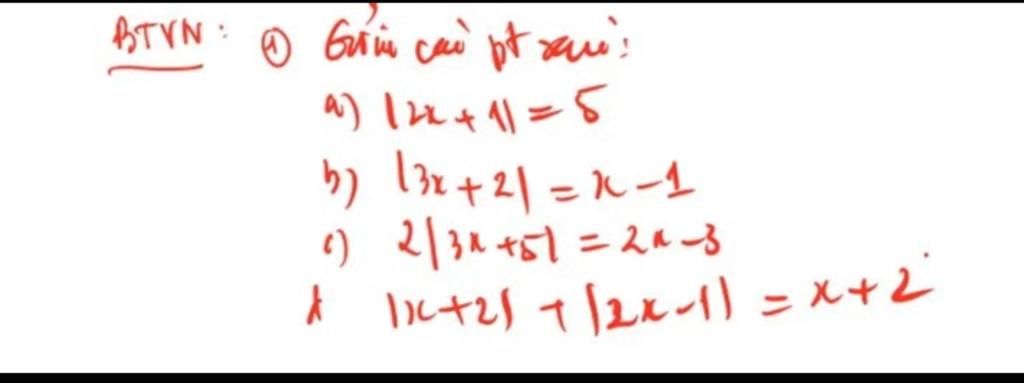 BTVN: ① Giải các pt sau:
a) |2x + 1| = 5
b) |3x + 2| = x - 1
c) 2|3x + 5| = 2x - 3
d |x + 2| + |2x - 1| = x + 2